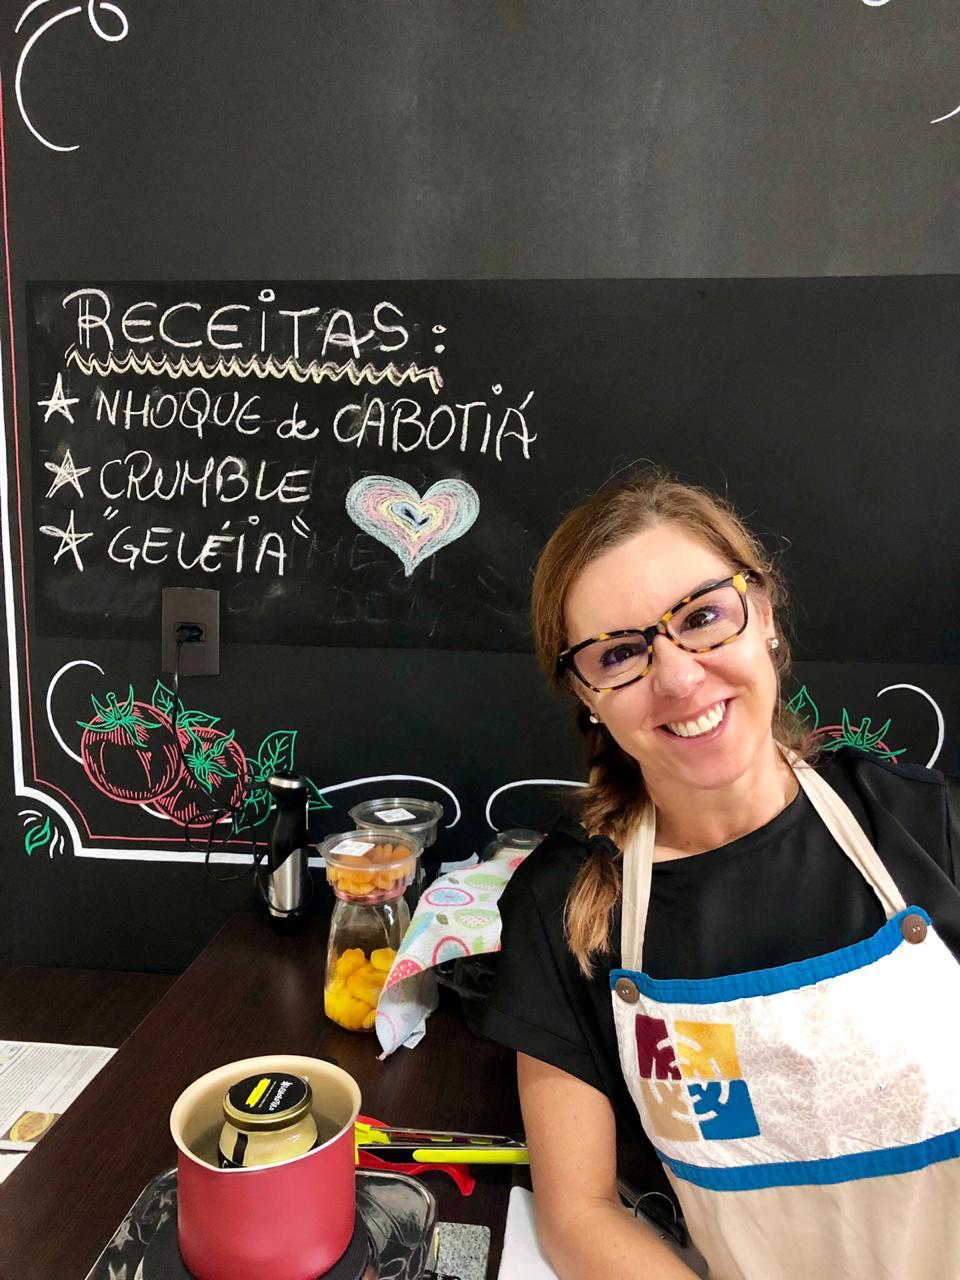 RECEITAS:
NHOQUE de CABOTIÁ
CRUMBLE
"GELÉIA"